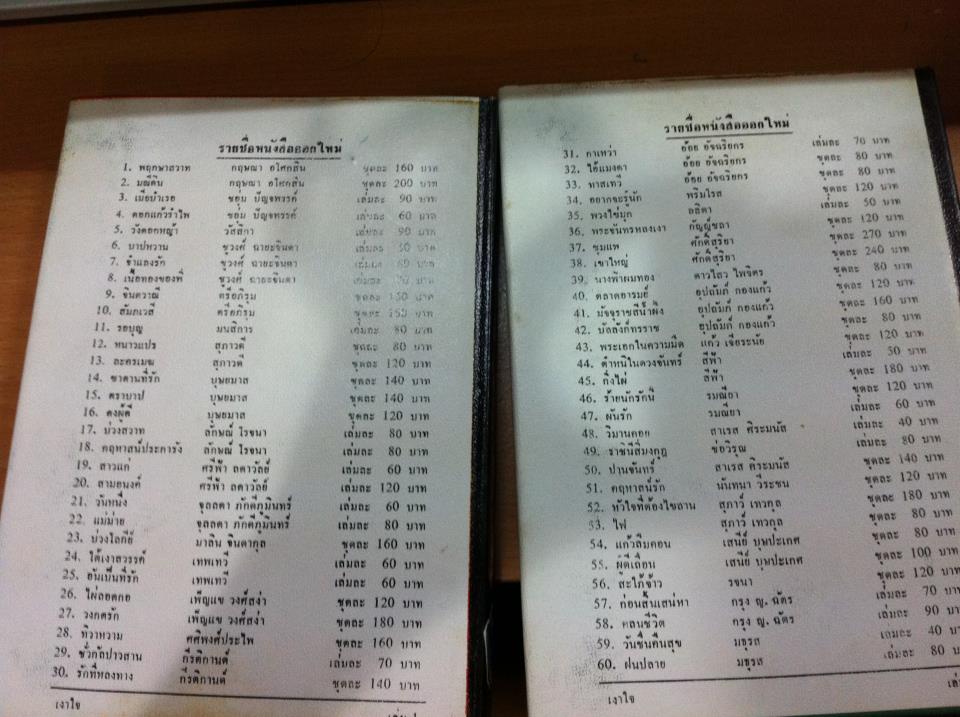 รายชื่อหนังสือออกใหม่
1. พฤกษาสวาท กฤษณา อโศกสิน ชุดละ 160 บาท
2. มณีดิน กฤษณา อโศกสิน ชุดละ 200 บาท
3. เมียบำเรอ ชอุ่ม ปัญจพรรค์ เล่มละ 90 บาท
4. ดอกแก้วรำไพ ชอุ่ม ปัญจพรรค์ เล่มละ 60 บาท
5. วังดอกหญ้า วัสสิกา เล่มละ 90 บาท
6. บาปหวาน ชูวงศ์ ฉายะจินดา เล่มละ บาท
7. จำเลยรัก ชูวงศ์ ฉายะจินดา เล่มละ 60 บาท
8. เนื้อทองของพี่ ชูวงศ์ ฉายะจินดา เล่มละ บาท
9. จินตวาณี ตรีอภิรุม ชุดละ บาท
10. สัมภเวสี ตรีอภิรุม ชุดละ บาท
11. รอบุญ มนสิการ เล่มละ 80 บาท
12. หนาวแปร สุภาวดี ชุดละ 80 บาท
13. ละครเมฆ สุภาวดี ชุดละ 120 บาท
14. ซาตานที่รัก บุษยมาส ชุดละ 140 บาท
15. ตราบาป บุษยมาส ชุดละ 140 บาท
16. ดงผู้ดี บุษยมาส ชุดละ 120 บาท
17. บ่วงสวาท ลักษณ์ โรจนา เล่มละ 80 บาท
18. คฤหาสน์ปะการัง ลักษณ์ โรจนา เล่มละ 80 บาท
19. สาวแก่ ศรีฟ้า ลดาวัลย์ เล่มละ 60 บาท
20. สามอนงค์ ศรีฟ้า ลดาวัลย์ เล่มละ 120 บาท
21. วันหนึ่ง จุลลดา ภักดีภูมินทร์ เล่มละ 60 บาท
22. แม่ม่าย จุลลดา ภักดีภูมินทร์ เล่มละ 80 บาท
23. บ่วงโลกีย์ มาลิน จินดากุล ชุดละ 160 บาท
24. ใต้เงาสวรรค์ เทพเทวี เล่มละ 60 บาท
25. อันเป็นที่รัก เทพเทวี เล่มละ 60 บาท
26. ไผ่ลอดกอ เพ็ญแข วงศ์สง่า ชุดละ 120 บาท
27. วงกตรัก เพ็ญแข วงศ์สง่า ชุดละ 180 บาท
28. ทิวาหวาม ศศิพงศ์ประไพ ชุดละ 160 บาท
29. ชั่วกัลปาวสาน กีรติกานต์ เล่มละ 70 บาท
30. รักที่หลงทาง กีรติกานต์ ชุดละ 140 บาท
เงาใจ
รายชื่อหนังสือออกใหม่
31. กาเหว่า อ้อย อัจฉริยกร เล่มละ 70 บาท
32. ไอ้แมงดา อ้อย อัจฉริยกร ชุดละ 80 บาท
33. ทาสเทวี อ้อย อัจฉริยกร ชุดละ 80 บาท
34. อยากจะรู้นัก พริมโรส ชุดละ 120 บาท
35. พวงไข่มุก ลลิตา เล่มละ 50 บาท
36. พระจันทรหลงเงา กัญญ์ชลา ชุดละ 120 บาท
37. ชุมแพ ศักดิ์สุริยา ชุดละ 270 บาท
38. เขาใหญ่ ศักดิ์สุริยา ชุดละ 240 บาท
39. นางฟ้าผมทอง ดาวไสว ไพจิตร ชุดละ 80 บาท
40. ตลาดอารมย์ อุปถัมภ์ กองแก้ว ชุดละ 120 บาท
41. มัจจุราชสีน้ำผึ้ง อุปถัมภ์ กองแก้ว ชุดละ 160 บาท
42. บัลลังก์ทราย อุปถัมภ์ กองแก้ว ชุดละ 80 บาท
43. พระเอกในความมืด แก้ว เจียระนัย ชุดละ 120 บาท
44. ตำหนิในดวงจันทร์ สีฟ้า เล่มละ 50 บาท
45. กิ่งไผ่ สีฟ้า ชุดละ 180 บาท
46. ร้ายนักรักนี้ รมณียา ชุดละ 120 บาท
47. ฝันรัก รมณียา เล่มละ 60 บาท
48. วิมานคอย สาเรส ศิระมนัส เล่มละ 40 บาท
49. ราชินีสี่มงกุฎ ช่อวิรุณ เล่มละ 80 บาท
50. ปานจันทร์ สาเรส ศิระมนัส ชุดละ 140 บาท
51. คฤหาสน์รัก นันทนา วีระชน ชุดละ 120 บาท
52. หัวใจที่ต้องไขลาน สุภาว์ เทวกุล ชุดละ 180 บาท
53. ไฟ สุภาว์ เทวกุล ชุดละ 80 บาท
54. แก้วลืมคอน เสนีย์ บุษปะเกศ ชุดละ 80 บาท
55. ผู้ดีเถื่อน เสนีย์ บุษปะเกศ ชุดละ 100 บาท
56. สะใภ้จ้าว รจนา ชุดละ 120 บาท
57. ก่อนสิ้นเสน่หา กรุง ญ. ฉัตร เล่มละ 70 บาท
58. คลนชีวิต กรุง ญ. ฉัตร เล่มละ 90 บาท
59. วันชื่นคืนสุข มธุรส เล่มละ 40 บาท
60. ฝนปลาย มธุรส เล่มละ 80 บาท
เงาใจ